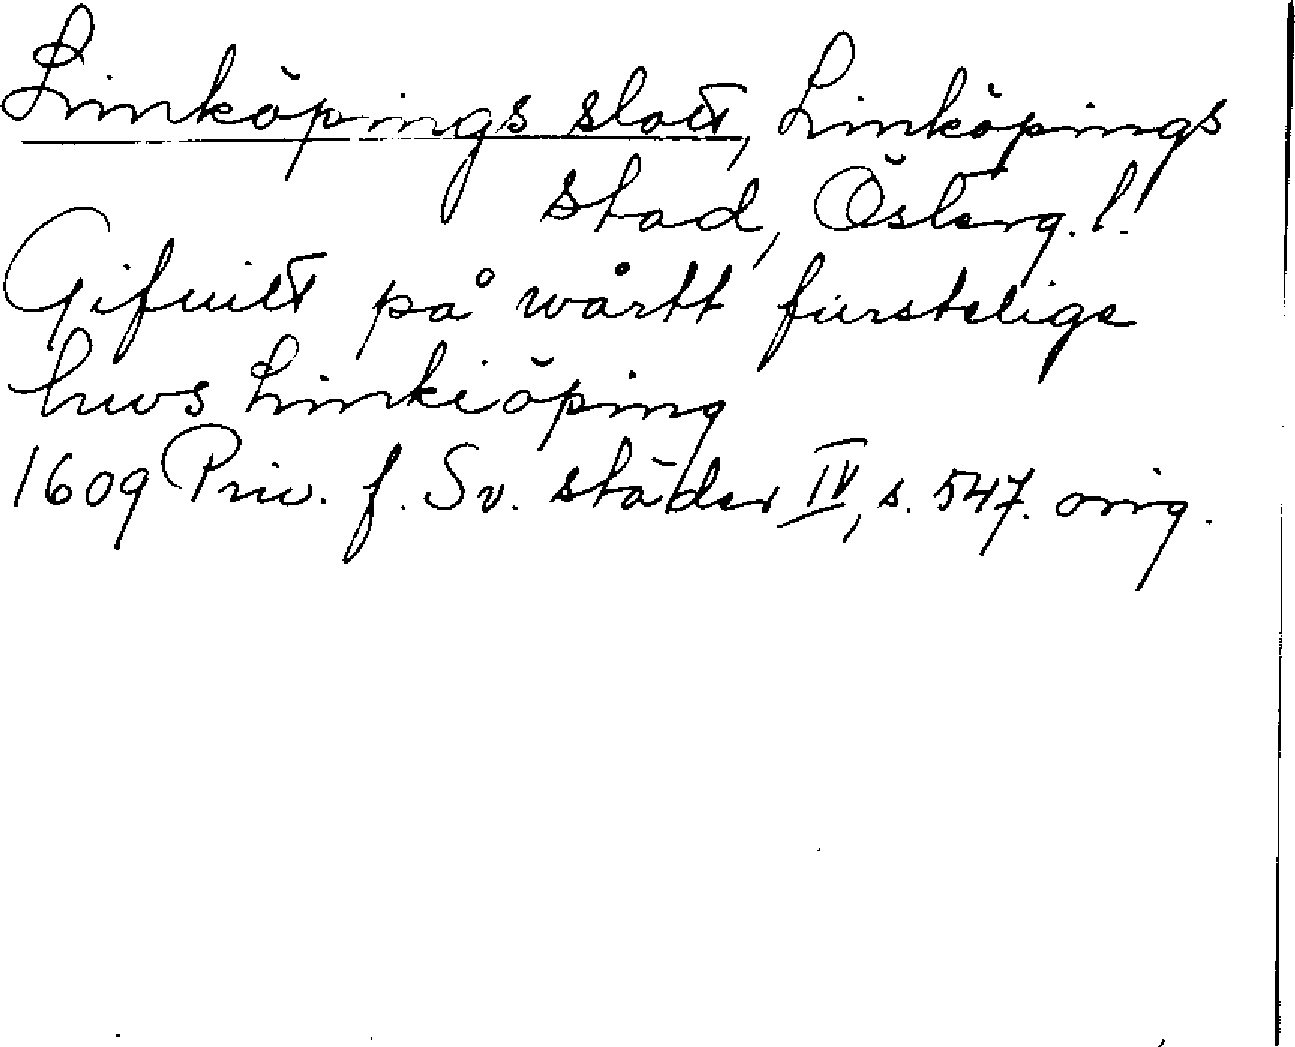 Linköpings slott, Linköpings
stad, Österg. l.
Gifuitt på wårtt furstelige
huus Linkiöping
1609 Priv. f. Sv. städer IV, s. 547. orig.